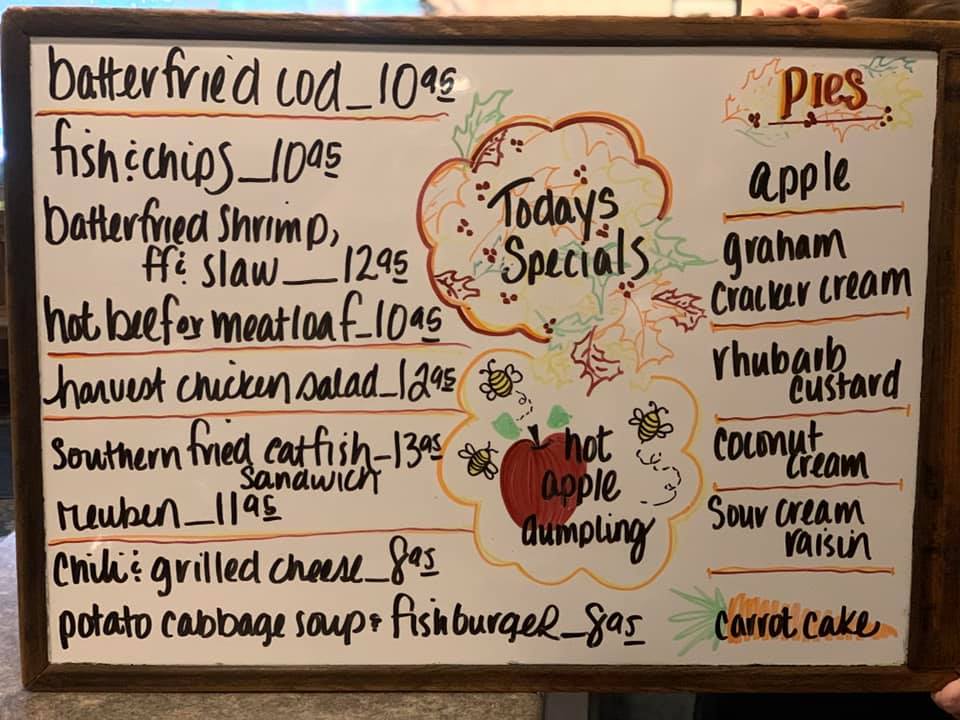 batterfried cod_10.95
fish & chips_10.95
batterfried shrimp,
ff & slaw__12.95
hot beef or meatloaf_10.95
harvest chicken salad_12.95
Southern fried catfish_13.95
sandwich
reuben_11.95
chili & grilled cheese_8.95
potato cabbage soup & fishburger_8.95
Todays
Specials
hot
apple
dumpling
Pies
apple
graham
cracker cream
rhubarb
custard
coconut
cream
Sour cream
raisin
carrot cake